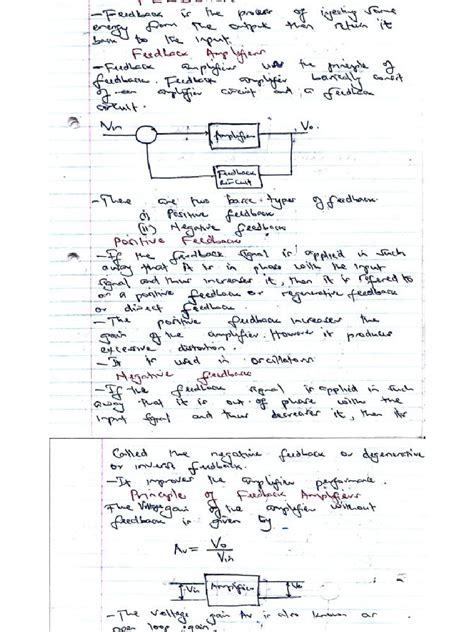 FEEDBACK
- Feedback is the process of injecting some
energy from the output then return it
back to the input.
Feedback Amplifiers
- Feedback amplifier use the principle of
feedback. Feedback amplifier basically consist
of an amplifier circuit and a feedback
circuit.
Vin Amplifier Vo
Feedback
circuit
- There are two basic types of feedback
(i) Positive feedback
(ii) Negative feedback
Positive Feedback
- If the feedback signal is applied in such
away that it is in phase with the input
signal and thus increases it, then it is referred to
as a positive feedback or regenerative feedback
or direct feedback
- The positive feedback increases the
gain of the amplifier. However it produces
excessive distortion.
- It is used in oscillators.
Negative feedback
- If the feedback signal is applied in such
away that it is out of phase with the
input signal and thus decreases it, then its
called the negative feedback or degenerative
or inverse feedback.
- It improves the amplifier performance.
Principle of Feedback Amplifiers
The Voltage gain of the amplifier without
feedback is given by
Av = Vo
Vin
Vin Amplifier Vo
- The voltage gain Av is also known as
open loop gain.